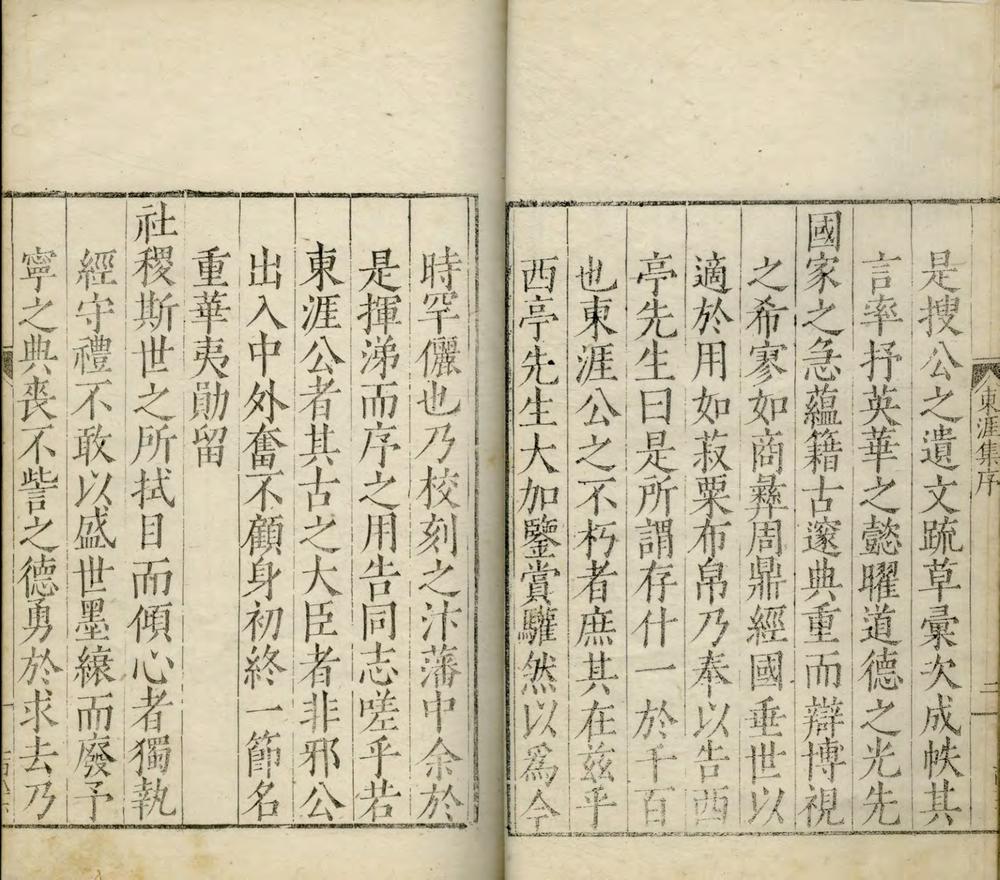 東涯集序
二
是搜公之遺文疏草彙次成帙其
言率抒英華之懿曜道德之光先
國家之急蘊籍古邃典重而辯博視
之希寥如商彝周鼎經國垂世以
適於用如菽粟布帛乃奉以告西
亭先生曰是所謂存什一於千百
也東涯公之不朽者庶其在茲乎
西亭先生大加鑒賞驩然以爲今
時罕儷也乃校刻之汴藩中余於
是揮涕而序之用告同志嗟乎若
東涯公者其古之大臣者非邪公
出入中外奮不顧身初終一節名
重華夷勛留
社稷斯世之所拭目而傾心者獨執
經守禮不敢以盛世墨縗而廢予
寧之典喪不訾之德勇於求去乃